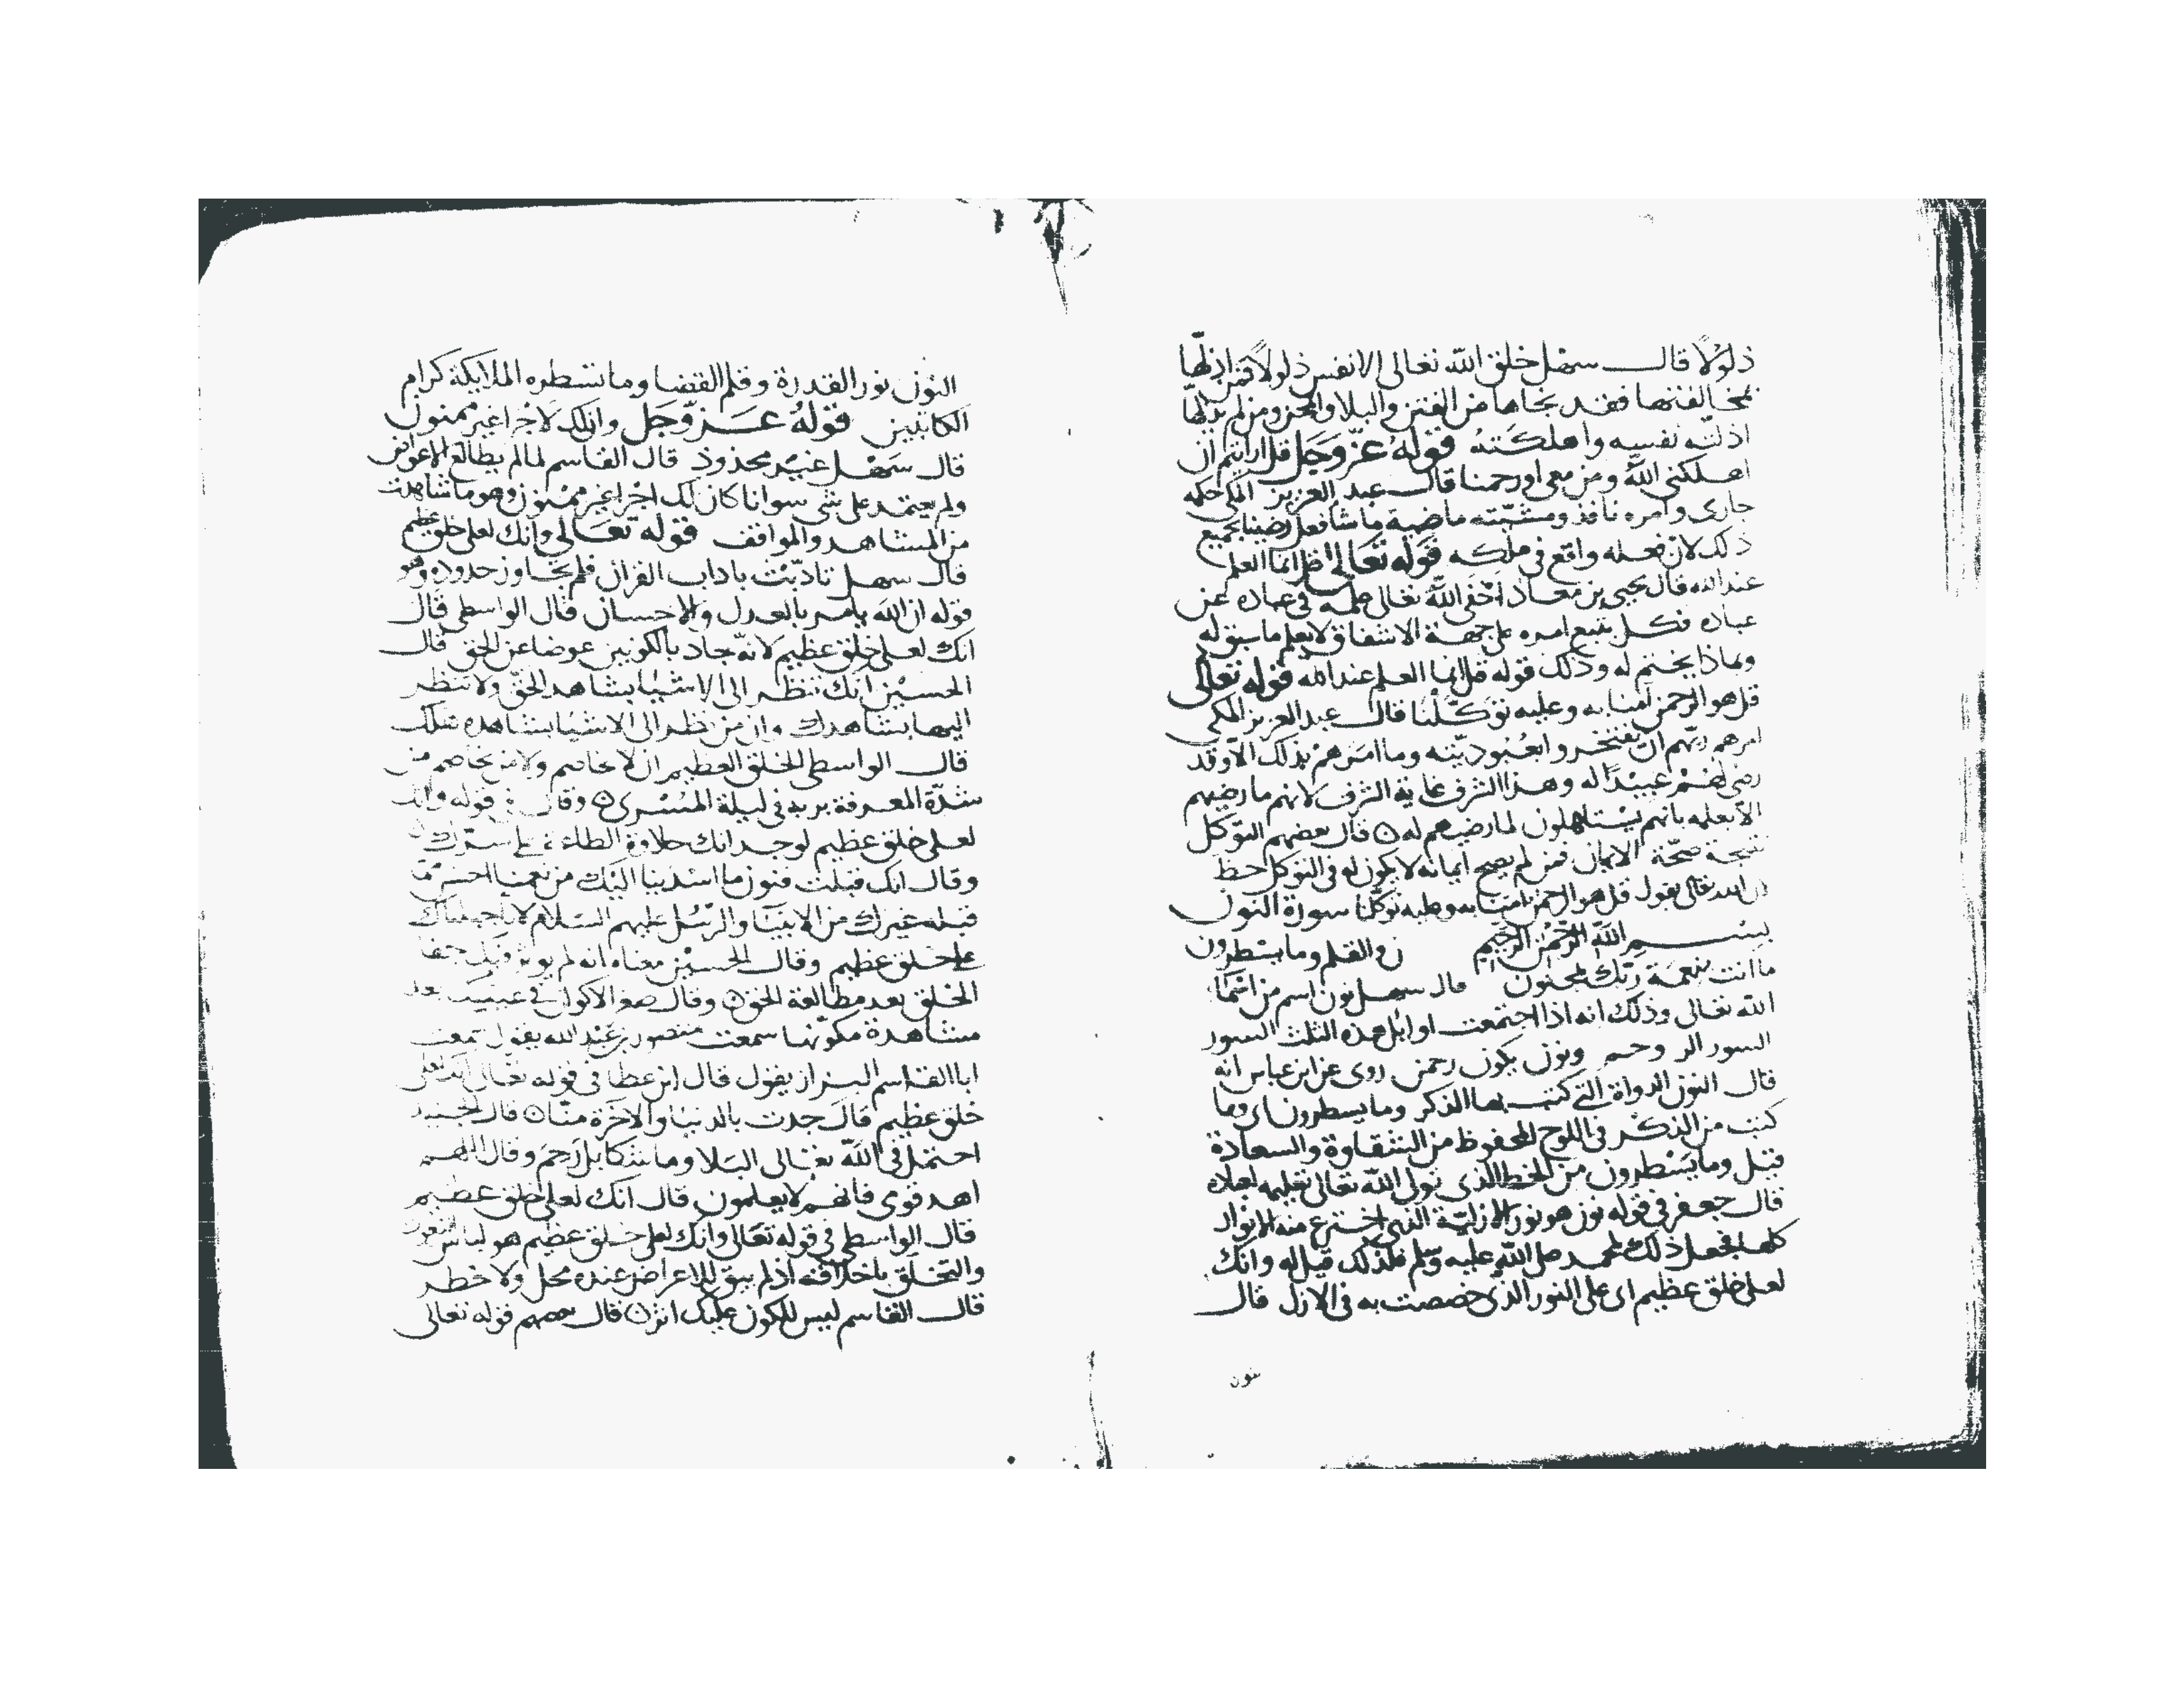 ذلولا قال سهل خلق الله تعالى الانفس ذلولا فمن اذلها
بمخالفتها فقد نجاها من الفتن والبلا والمحن ومن لم يذلها
اذلته نفسه واهلكته قوله عز وجل قل ارايتم ان
اهلكنى الله ومن معى اورحمنا قال عبد العزيز المكى حكمه
جارى وامره نافذ ومشيته ماضية ما شا فعل رضينا بجميع
ذلك لان فعله واقع فى ملكه قوله تعالى قل انما العلم
عند الله قال يحيى بن معاذ اخفى الله تعالى علمه فى عباده عن
عباده فكل يتبع امره على جهة الاشفاق لا يعلم ما سبق له
وماذا يختم له وذلك قوله قل انما العلم عند الله قوله تعالى
قل هو الرحمن امنا به وعليه توكلنا قال عبد العزيز المكى
امرهم ربهم ان يفتخروا بعبوديته وما امرهم بذلك الا وقد
رضى لهم عبيدا له وهذا الشرف غاية الشرف لانهم ما رضيهم
الا بعلمه بانهم يستاهلون لما رضيهم له ن قال بعضهم التوكل
نتيجة صحة الايمان فمن لم يصح ايمانه لا يكون له فى التوكل حظ
ان الله تعالى يقول قل هو الرحمن امنا به وعليه توكلنا سورة النون
بسم الله الرحمن الرحيم ن والقلم وما يسطرون
ما انت بنعمة ربك بمجنون قال سهل نون اسم من اسما
الله تعالى وذلك انه اذا اجتمعت اوايل هذه الثلث السور
السور الر وحم ونون يكون رحمن روى عن ابن عباس انه
قال النون الدواة التى كتب بها الذكر وما يسطرون اى وما
كتب من الذكر فى اللوح المحفوظ من الشقاوة والسعادة
قيل وما يسطرون من الخط الذى تولى الله تعالى تعليمه لعباده
قال جعفر فى قوله نون هو نور الازلية الذى اخترع منه الانوار
كلها فجعل ذلك لمحمد صلى الله عليه وسلم فلذلك قيل له وانك
لعلى خلق عظيم اى على النور الذى خصصت به فى الازل قال
النون نور القدرة وقلم القضا وما تسطره الملايكة كرام
الكاتبين قوله عز وجل وان لك لاجرا غير ممنون
قال سهل غير محذوذ قال القاسم لما لم يطالع الاعواض
ولم يعتمد على شى سوانا كان لك اجرا غير ممنون وهو ما شاهدت
من المشاهد والمواقف قوله تعالى وانك لعلى خلق عظيم
قال سهل تادبت باداب القران فلم تجاوز حدوده وهو
قوله ان الله يامر بالعدل والاحسان قال الواسطى قال
انك لعلى خلق عظيم لانه جاد بالكونين عوضا عن الحق قال
الحسين انك تنظر الى الاشيا بشاهد الحق ولا تنظر
اليها بشاهدك وان من نظر الى الاشيا بشاهده هلك
قال الواسطى الخلق العظيم ان لا يخاصم ولا يخاصم من
شدة المعرفة بربه فى ليلة المسرى ن وقال فى قوله وانك
لعلى خلق عظيم لوجدانك حلاوة المطالعة على سترك
وقال انك قبلت فنون ما اسدينا اليك من نعمنا احسن مما
قبله غيرك من الانبيا والرسل عليهم السلام لا جعلناك
على خلق عظيم وقال الحسين معناه انه لم يوثر فيك جفا
الخلق بعد مطالعة الحق ن وقال صغر الاكوان فى عينيك بعد
مشاهدة مكونها سمعت منصور بن عبد الله يقول سمعت
ابا القاسم البزاز يقول قال ابن عطا فى قوله تعالى انك لعلى
خلق عظيم قال جدت بالدنيا والاخرة منا ن قال الجنيد
احتمل فى الله تعالى البلا وما شكا بل رحم وقال اللهم
اهد قومى فانهم لا يعلمون قال انك لعلى خلق عظيم
قال الواسطى فى قوله تعالى وانك لعلى خلق عظيم هو لباس النعوت
والتخلق باخلاقه اذ لم يبق للاعراض عنده محل ولا خطر
قال القاسم ليس للكون عليك اثر ن قال بعضهم قوله تعالى